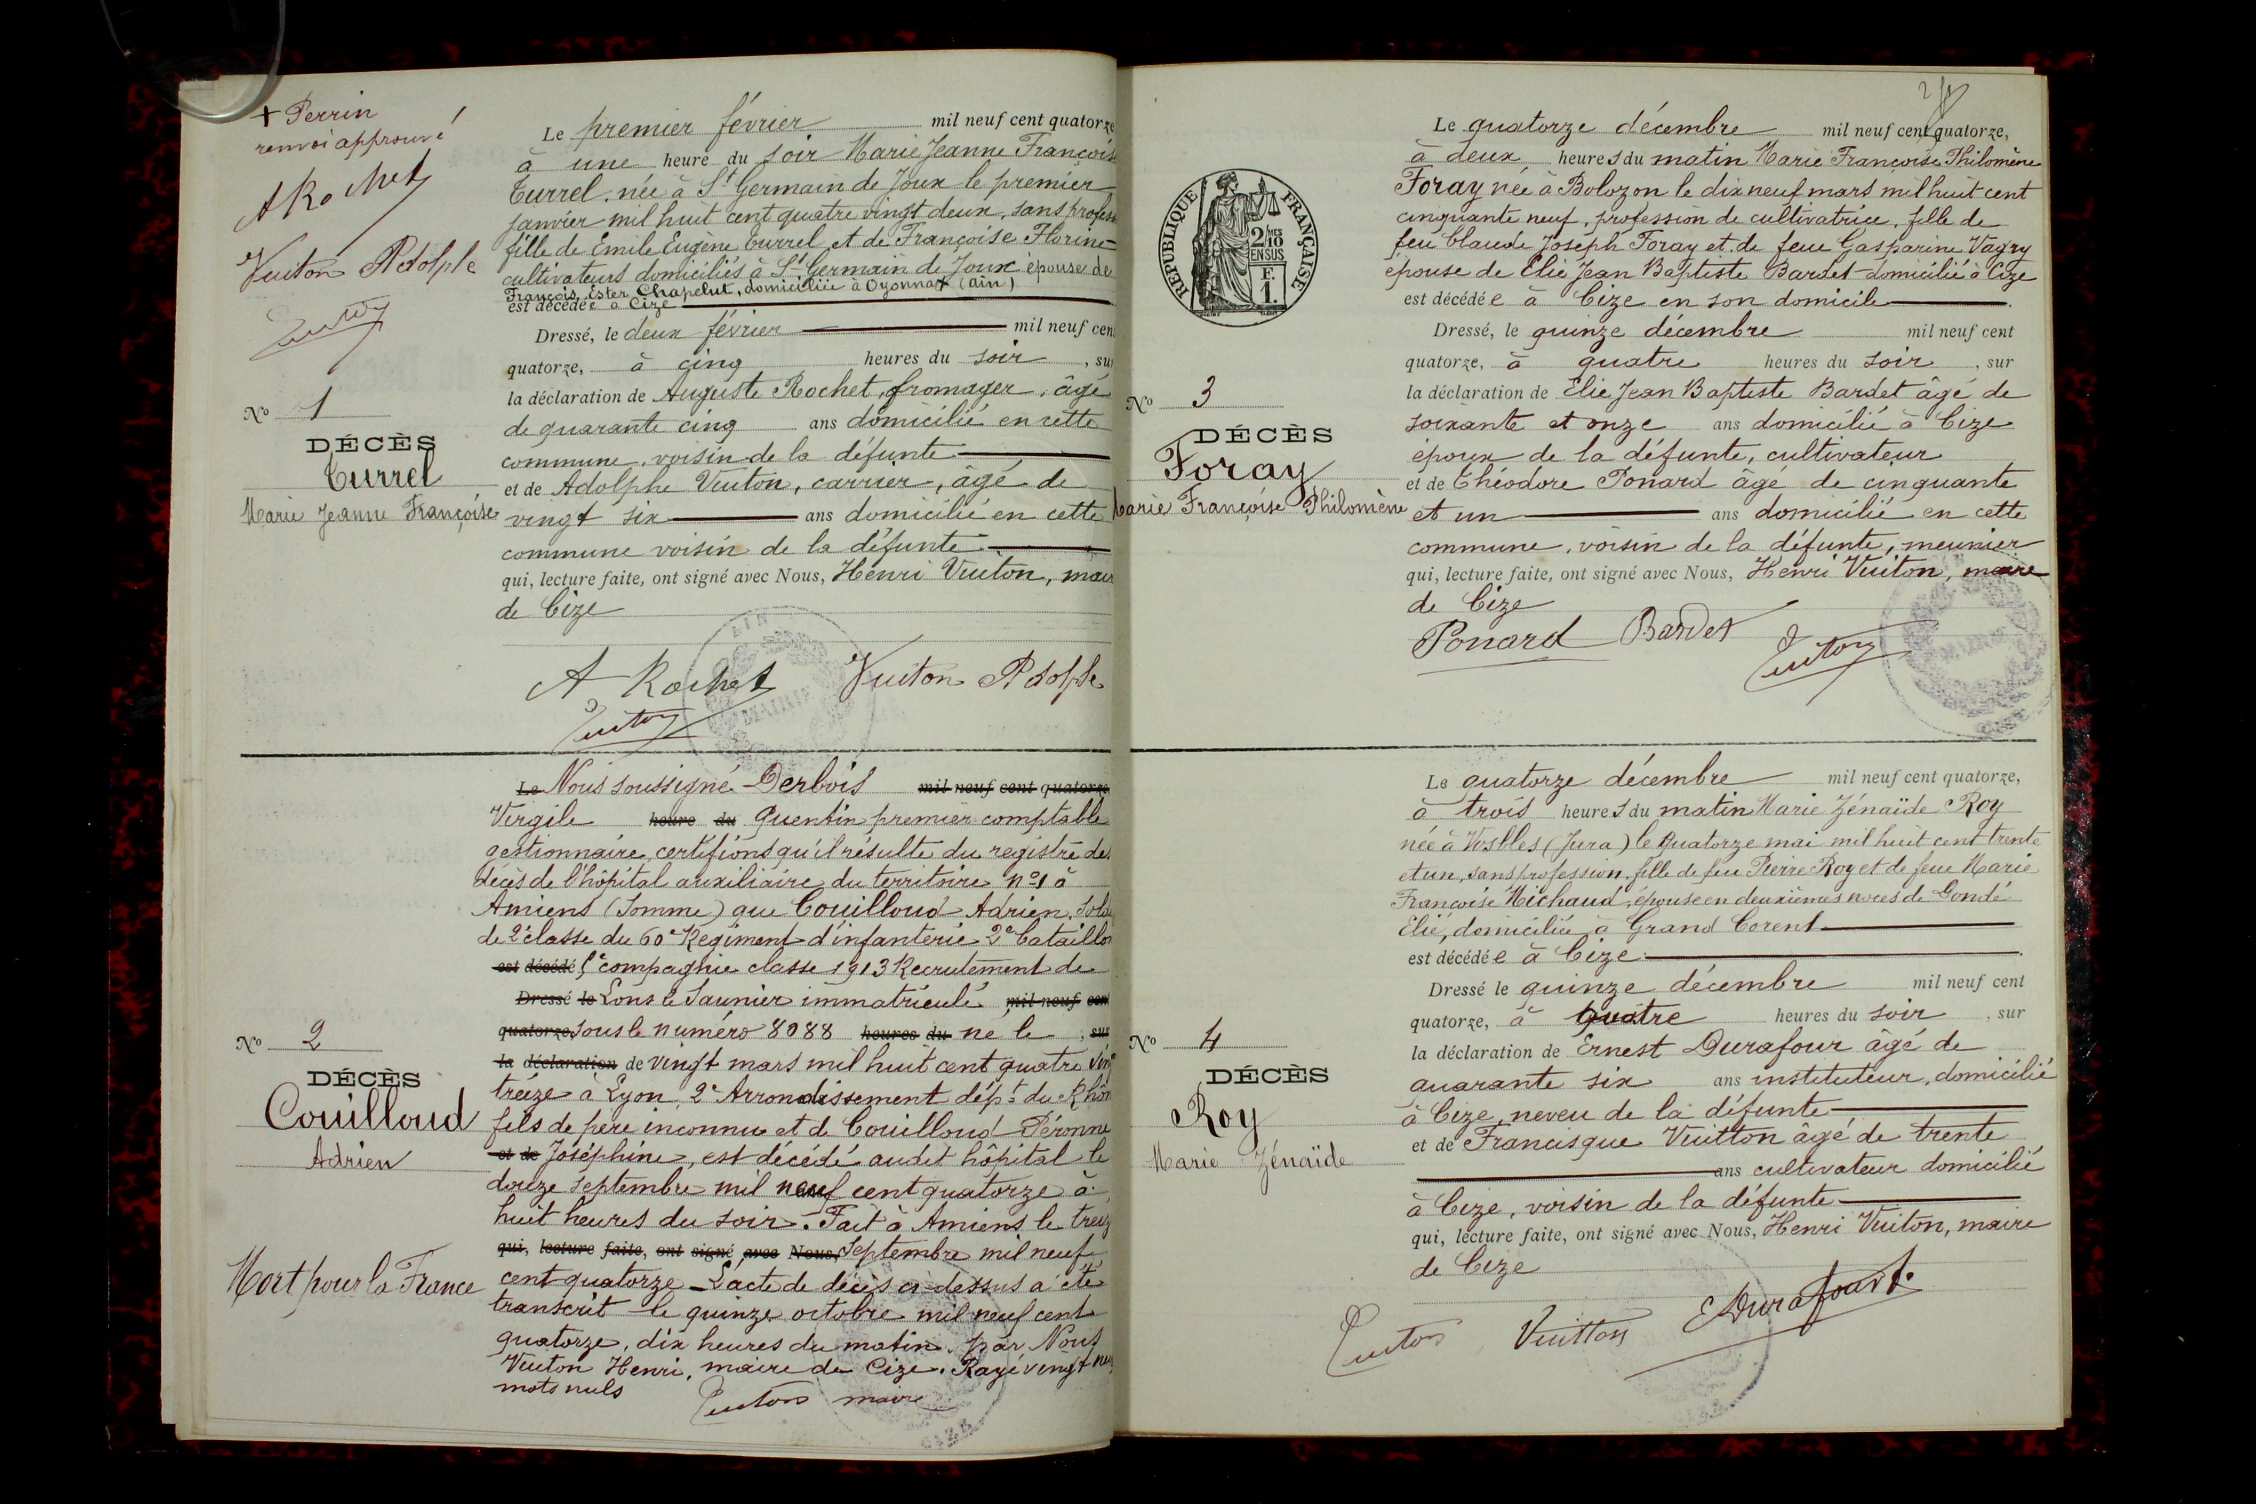 + Perrin
renvoi approuvé
A Rochet
Vuiton Adolphe
Vuiton
No 1
DÉCÈS
Turrel
Marie Jeanne Françoise
Le premier février mil neuf cent quatorze
à une heure du soir Marie Jeanne Françoise
Turrel, née à St Germain de Joux le premier
janvier mil huit cent quatre vingt deux, sans profess
fille de Emile Eugène Turrel et de Françoise Florine
cultivateurs domiciliés à St Germain de Joux épouse de
François Ester Chapelut, domiciliée à Oyonnax (ain)
est décédée à Cize
Dressé, le deux février mil neuf cen
quatorze, à cinq heures du soir, su
la déclaration de Auguste Rochet, fromager, âgé
de quarante cinq ans domicilié en cette
commune, voisin de la défunte
et de Adolphe Vuiton, carrier, âgé de
vingt six ans domicilié en cette
commune voisin de la défunte
qui, lecture faite, ont signé avec Nous, Henri Vuiton, mair
de Cize
A Rochet Vuiton Adolphe
Vuiton
No 2
DÉCÈS
Couilloud
Adrien
Mort pour la France
Le Nous soussigné Derbois mil neuf cent quatorze
Virgile heure du Quentin premier comptable
gestionnaire, certifions qu'il résulte du registre des
décès de l'hôpital auxiliaire du territoire No 1 à
Amiens (Somme) que Couilloud Adrien, Solda
de 2e classe du 60e Régiment d'infanterie 2e bataillon
est décédé compagnie classe 1913 Recrutement de
Dressé le Lons le Saunier immatriculé mil neuf cent
quatorze sous le numéro 8088 heures du ne le, sur
la déclaration de vingt mars mil huit cent quatre vin
treize à Lyon, 2e Arrondissement dépt du Rhôn
fils de père inconnu et de Couilloud Péronne
et de Joséphine, est décédé audit hôpital le
douze septembre mil neuf cent quatorze à
huit heures du soir. Fait à Amiens le treiz
qui, lecture faite, ont signé avec Nous, Septembre mil neuf
cent quatorze - L'acte de décès ci-dessus a été
transcrit le quinze octobre mil neuf cent
quatorze, dix heures du matin, par Nous
Vuiton Henri, maire de Cize. Rayé vingt neu
mots nuls
Vuiton maire
RÉPUBLIQUE FRANÇAISE
2/10 EN SUS
F. 1.
No 3
DÉCÈS
Foray
Marie Françoise Philomène
Le quatorze décembre mil neuf cent quatorze,
à deux heures du matin Marie Françoise Philomène
Foray née à Bolozon le dix neuf mars mil huit cent
cinquante neuf, profession de cultivatrice, fille de
feu Claude Joseph Foray et de feue Gasparine Vagry
épouse de Elie Jean Baptiste Bardet domicilié à Cize
est décédée à Cize en son domicile
Dressé, le quinze décembre mil neuf cent
quatorze, à quatre heures du soir, sur
la déclaration de Elie Jean Baptiste Bardet âgé de
soixante et onze ans domicilié à Cize
époux de la défunte, cultivateur
et de Théodore Ponard âgé de cinquante
et un ans domicilié en cette
commune, voisin de la défunte, meunier
qui, lecture faite, ont signé avec Nous, Henri Vuiton, maire
de Cize
Ponard Bardet Vuiton
No 4
DÉCÈS
Roy
Marie Zénaïde
Le quatorze décembre mil neuf cent quatorze,
à trois heures du matin Marie Zénaïde Roy
née à Vosbles (Jura) le Quatorze mai mil huit cent trente
et un, sans profession, fille de feu Pierre Roy et de feue Marie
Françoise Michaud, épouse en deuxièmes noces de Gondé
Elié, domiciliée à Grand Corent
est décédée à Cize
Dressé le quinze décembre mil neuf cent
quatorze, à quatre heures du soir, sur
la déclaration de Ernest Durafour âgé de
quarante six ans instituteur, domicilié
à Cize, neveu de la défunte
et de Francisque Vuitton âgé de trente
ans cultivateur domicilié
à Cize, voisin de la défunte
qui, lecture faite, ont signé avec Nous, Henri Vuiton, maire
de Cize
Vuiton Vuitton EDurafour